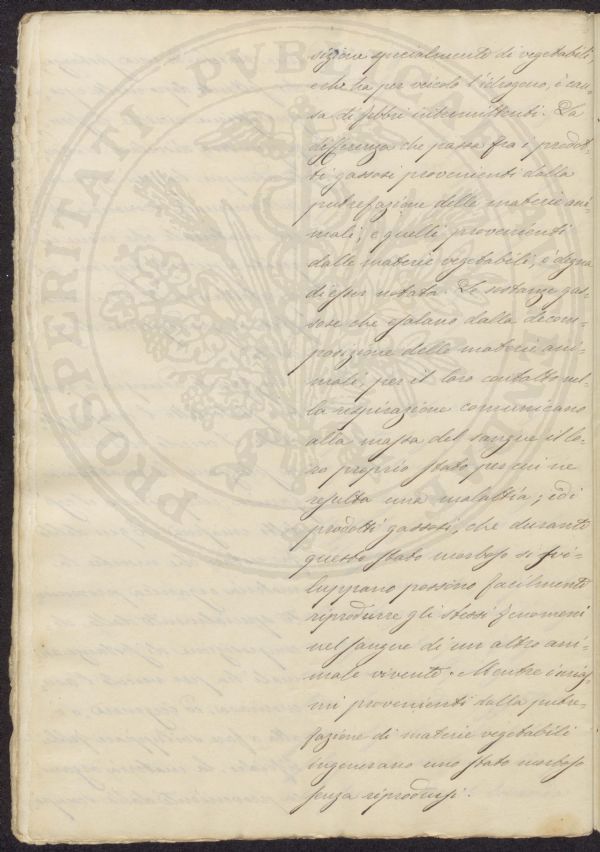 sizione specialmente di vegetabili,
e che ha per veicolo l'idrogeno, è cau-
sa di febbri intermittenti. La
differenza che passa fra i prodot-
ti gassosi provenienti dalla
putrefazione delle materie ani-
mali, e quelli provenienti
dalle materie vegetabili, è degna
di esser notata. Le sostanze gas-
sose che esalano dalla decom-
posizione delle materie ani-
mali, per il loro contatto nel-
la respirazione comunicano
alla massa del sangue il lo-
ro proprio stato per cui ne
resulta una malattia; ed i
prodotti gassosi, che durante
questo stato morboso si svi-
luppano possono facilmente
riprodurre gli stessi fenomeni
nel sangue di un altro ani-
male vivente. Mentre i mias-
mi provenienti dalla putre-
fazione di materie vegetabili
ingenerano uno stato morboso
senza riprodursi.
PROSPERITATI PVBLICAE